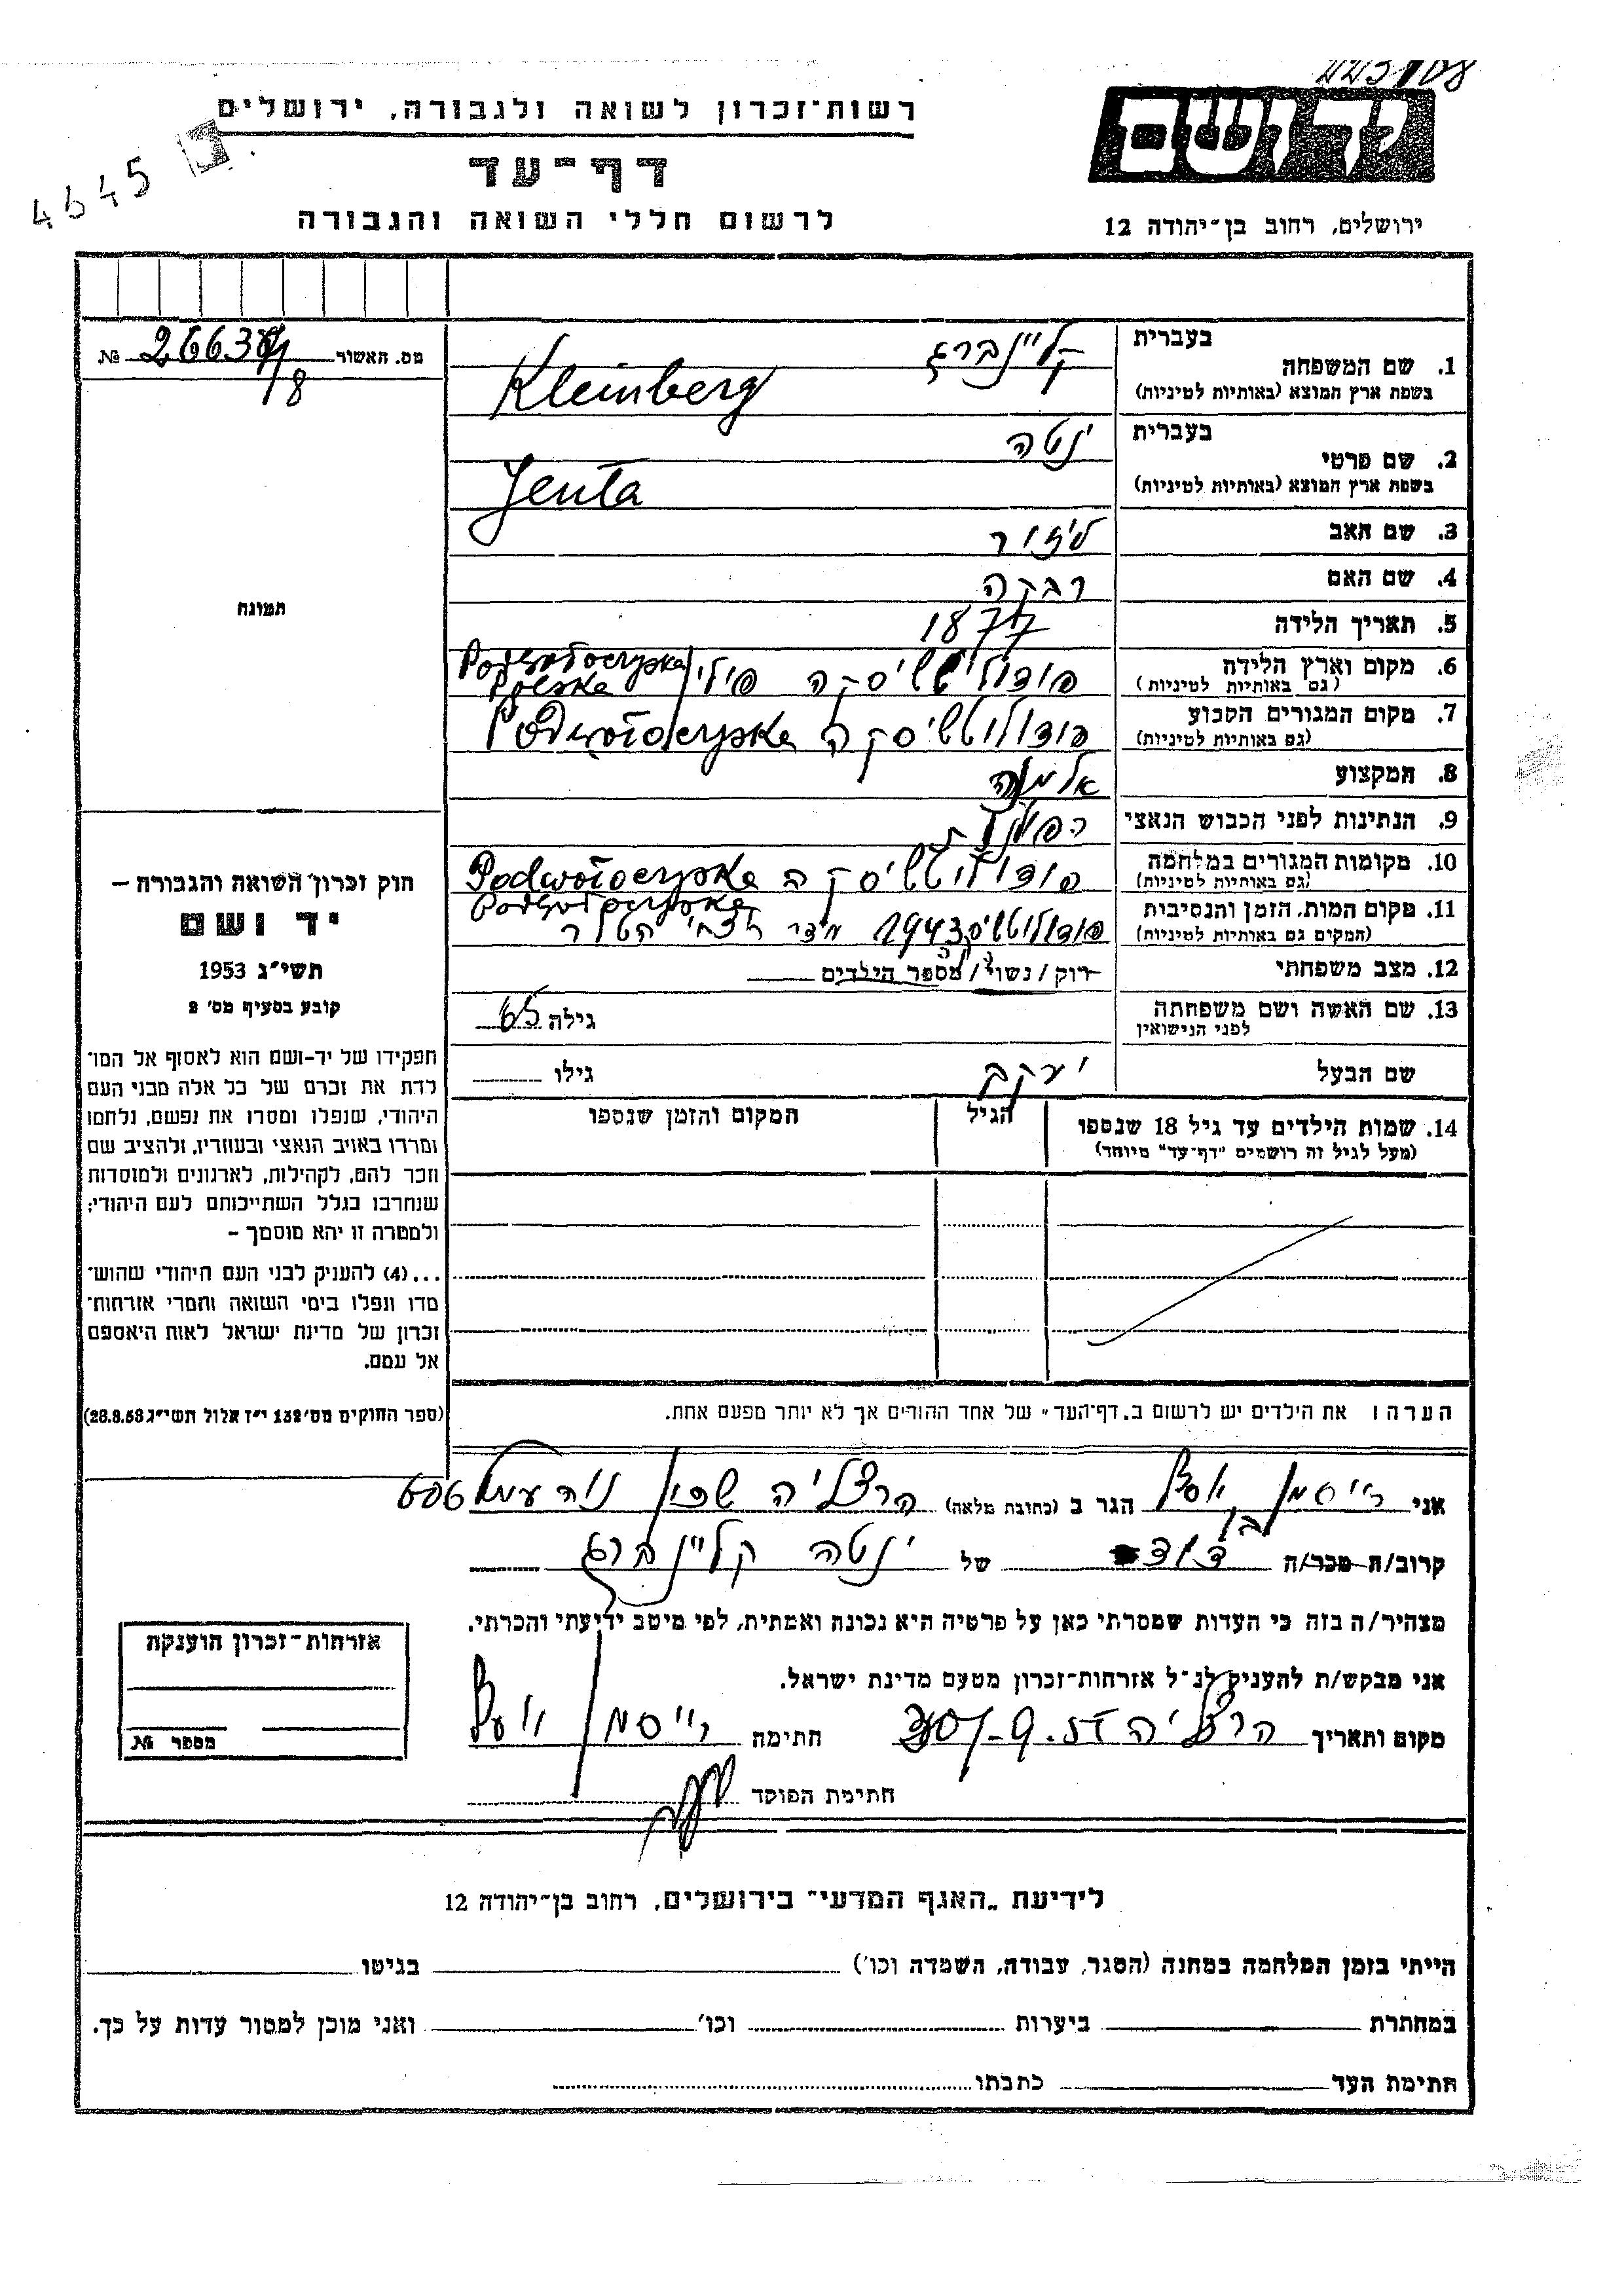 רשות־זכרון לשואה ולגבורה, ירושלים
דף־עד
לרשום חללי השואה והגבורה
4645
ירושלים, רחוב בן־יהודה 12
מס. האשור №
1. שם המשפחה בעברית קליינברג
בשפת ארץ המוצא (באותיות לטיניות) Kleinberg
2. שם פרטי בעברית ינטה
בשפת ארץ המוצא (באותיות לטיניות) Jenta
3. שם האב ליזור
4. שם האם רבקה
5. תאריך הלידה 1877
6. מקום וארץ הלידה
(גם באותיות לטיניות) פולין Polska
7. מקום המגורים הקבוע
(גם באותיות לטיניות)
8. המקצוע אלמנה
9. הנתינות לפני הכבוש הנאצי
10. מקומות המגורים במלחמה
(גם באותיות לטיניות) Podwołoczyska
11. מקום המות, הזמן והנסיבות
(המקום גם באותיות לטיניות) 1943 היטלר
12. מצב משפחתי רוק/נשוי/מספר הילדים
13. שם האשה ושם משפחתה
לפני הנישואין גילה 65
שם הבעל יעקב גילו
14. שמות הילדים עד גיל 18 שנספו הגיל המקום והזמן שנספו
(מעל לגיל זה רושמים "דף־עד" מיוחד)
תמונה
חוק זכרון השואה והגבורה –
יד ושם
תשי"ג 1953
קובע בסעיף מס' 2
תפקידו של יד-ושם הוא לאסוף אל המו־
לדת את זכרם של כל אלה מבני העם
היהודי, שנפלו ומסרו את נפשם, נלחמו
ומררו באויב הנאצי ובעוזריו, ולהציב שם
וזכר להם, לקהילות, לארגונים ולמוסדות
שנחרבו בגלל השתייכותם לעם היהודי;
ולמטרה זו יהא מוסמך –
...(4) להעניק לבני העם היהודי שהוש־
מדו ונפלו בימי השואה והמרי אזרחות־
זכרון של מדינת ישראל לאות היאספם
אל עמם.
(ספר החוקים מס' 132 י"ז אלול תשי"ג 28.8.53)
הערה: את הילדים יש לרשום ב„דף־העד" של אחד ההורים אך לא יותר מפעם אחת.
אני רייסמן הגר ב (כתובת מלאה) הרצליה שכון נוה עמל 606
קרוב/ה מכר/ה בן דוד של ינטה קליינברג
מצהיר/ה בזה כי העדות שמסרתי כאן על פרטיה היא נכונה ואמתית, לפי מיטב ידיעתי והכרתי.
אני מבקש/ת להעניק לנ"ל אזרחות־זכרון מטעם מדינת ישראל.
מקום ותאריך הרצליה חתימה רייסמן
חתימת הפוקד
אזרחות־זכרון הוענקה
מספר №
לידיעת „האגף המדעי" בירושלים, רחוב בן־יהודה 12
הייתי בזמן המלחמה במחנה (הסגר, עבודה, השמדה וכו') בגיטו
במחתרת ביערות וכו' ואני מוכן למסור עדות על כך.
חתימת העד כתבתו